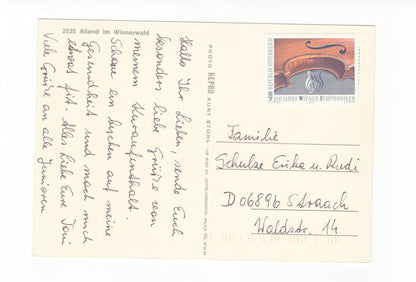 2535 Alland im Wienerwald
Hallo Ihr Lieben, sende Euch
besonders liebe Grüße von
meinem Kuraufenthalt.
Schaue ein bischen auf meine
Gesundheit und mach mich
etwas fit. Alles Liebe Eure Toni
Viele Grüße an alle Junioren
PHOTO REPRO KURT STOHL
REPUBLIK ÖSTERREICH
100 JAHRE WIENER SYMPHONIKER
Familie
Schulze Erika u. Rudi
D 06896 Straach
Waldstr. 14